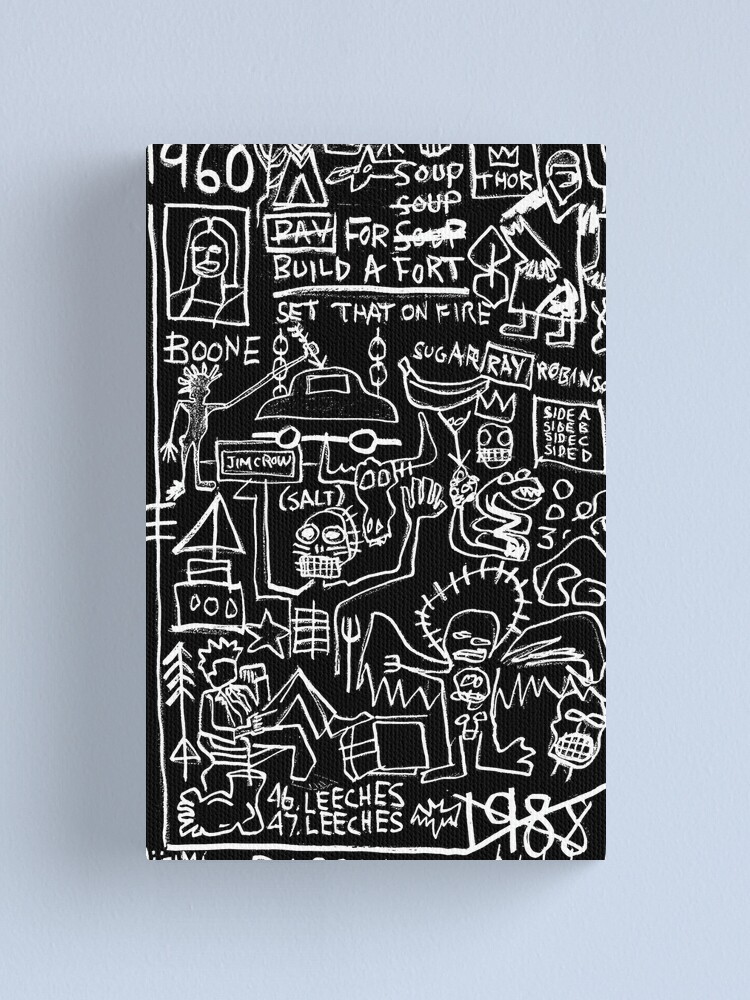 1960
SOUP
THOR
SOUP
PAY FOR SOUP
BUILD A FORT
SET THAT ON FIRE
BOONE
SUGAR RAY ROBINSO
SIDE A
SIDE B
SIDE C
SIDE D
JIM CROW
(SALT)
46. LEECHES
47. LEECHES
1988